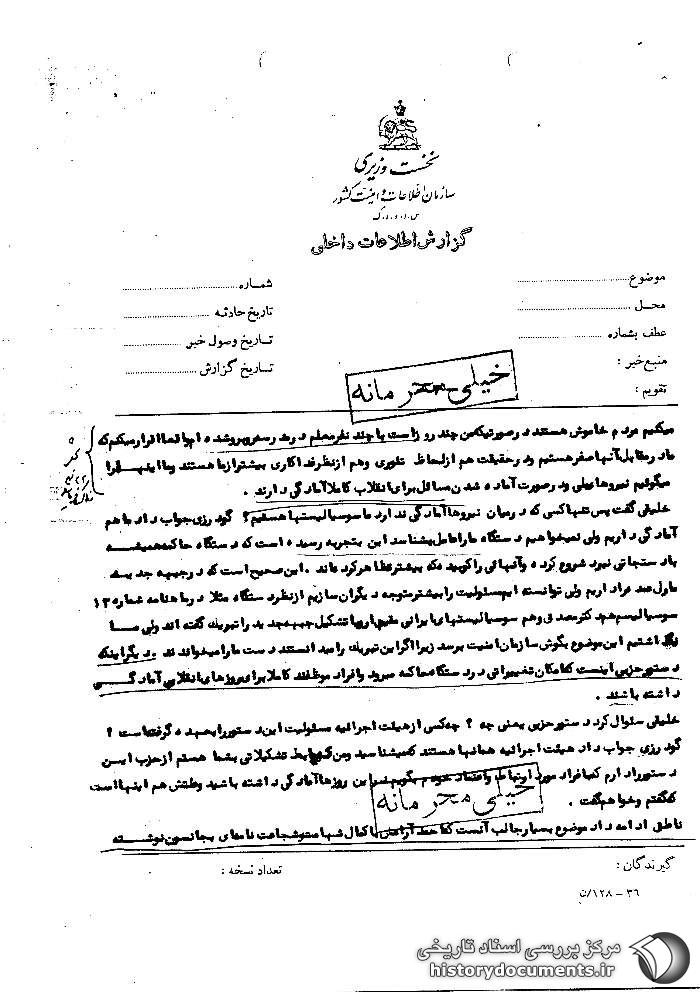 نخست وزیری
سازمان اطلاعات و امنیت کشور
س.ا.و.ا.ک
گزارش اطلاعات داخلی
موضوع
شماره
محل
تاریخ حادثه
عطف بشماره
تاریخ وصول خبر
منبع خبر :
تاریخ گزارش
تقویم :
خیلی محرمانه
میکنیم مردم خاموش هستند در صورتیکه من چند روز است با چند نفر معلم در بند رسعر روبرو شده ام واقعا اقرار میکنم که
ما در مقابل آنها صفر هستیم و در حقیقت هم از لحاظ تئوری و هم از نظر فداکاری بیشتر از ما هستند و ما اینها را
میگوئیم نیروهای ملی و در صورت آماده شدن مسائل برای انقلاب کاملا آمادگی دارند .
خلیقی گفت پس تنها کسی که در میان نیروها آمادگی ندارد ما سوسیالیستها هستیم ؟ گودرزی جواب داد ما هم
آمادگی داریم ولی نمیخواهیم دستگاه ما را عامل بشناسد این بتجربه رسیده است که دستگاه حاکمه همیشه
با دستجاتی نبرد شروع کرده و آنهائی را کوبیده که بیشتر تظاهر کرده اند . این صحیح است که در جبهه جدید
ما رل عمده را داریم ولی توانسته ایم مسئولیت را بیشتر متوجه دیگران سازیم از نظر دستگاه مثلا در ماهنامه شماره ۱۲
سوسیالیسم هم دکتر مصدق و هم سوسیالیستهای ایرانی مقیم اروپا تشکیل جبهه جدید را تبریک گفته اند ولی ما
نگذاشتیم این موضوع بگوش سازمان امنیت برسد زیرا اگر این تبریک را میدانستند دست ما را میخواندند . دیگر اینکه
دستور حزبی اینست که امکان تغییراتی در دستگاه حاکمه میرود و افراد موظفند کاملا برای روزهای انقلابی آمادگی
داشته باشند .
خلیقی سئوال کرد دستور حزبی یعنی چه ؟ چه کسی از هیئت اجرائیه مسئولیت این دستور را بعهده گرفته است ؟
گودرزی جواب داد هیئت اجرائیه همانها هستند که میشناسید و من که رابط تشکیلاتی بشما هستم از حزب این
دستور دارم که با افراد مورد اعتماد خودم بگویم برای این روزها آمادگی داشته باشید و علتش هم اینها است
که گفتم و خواهم گفت .
خیلی محرمانه
ناطق ادامه داد موضوع بسیار جالب آنست که احمد آرامش با کمال شهامت و شجاعت نامه ای بجانسون نوشته
گیرندگان :
تعداد نسخه :
۳۶ - ۱۲۸/ن
مرکز بررسی اسناد تاریخی
historydocuments.ir